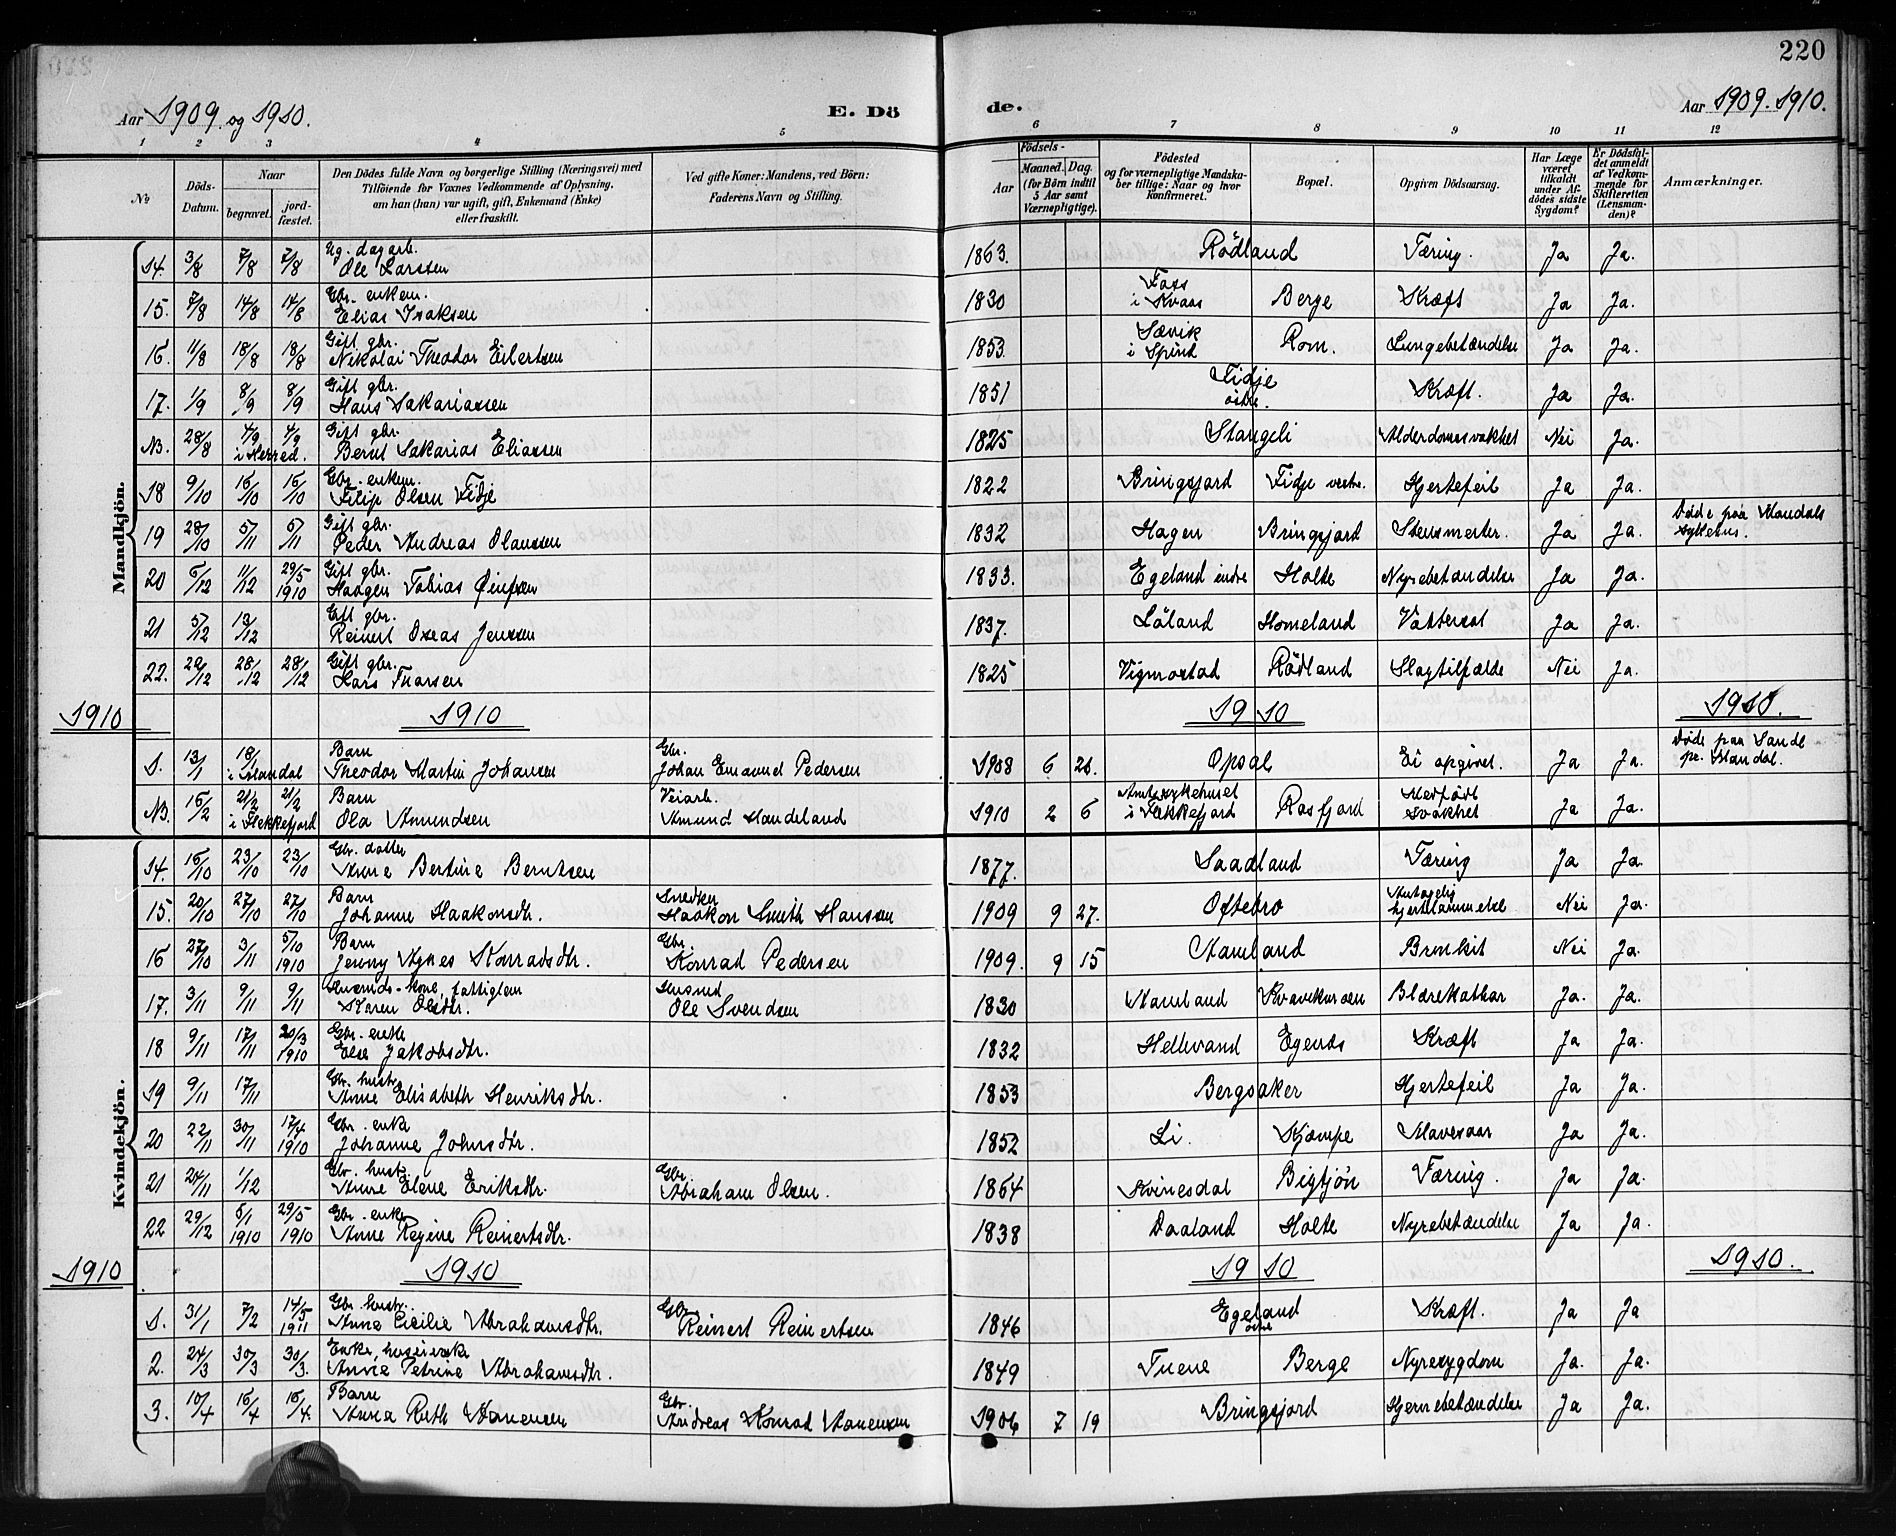 220
Aar 1909 og 1910. E. Dö de. Aar 1909. 1910.
1 2 3 4 5 6 7 8 9 10 11 12
№ Döds-Datum. Naar begravet. jord-fæstet. Den Dödes fulde Navn og borgerlige Stilling (Næringsvei) med Tilföiende for Voxnes Vedkommende af Oplysning, om han (hun) var ugift, gift, Enkemand (Enke) eller fraskilt. Ved gifte Koner: Mandens, ved Börn: Faderens Navn og Stilling. Födsels- Aar Maaned. Dag. (for Börn indtil 5 Aar samt Værnepligtige). Födested og for værnepligtige Mandskaber tillige: Naar og hvor konfirmeret. Bopæl. Opgiven Dödsaarsag. Har Læge været tilkaldt under Afdödes sidste Sygdom? Er Dödsfaldet anmeldt af Vedkommende for Skifteretten (Lensmanden)? Anmærkninger.
Mandkjön.
14. 3/8 7/8 7/8 Ug. dagarb. Ole Larssen 1863. Rödland Tæring. Ja Ja.
15. 7/8 14/8 14/8 Gbr. enkem. Elias Isaksen 1830 Foss i Kvaas Berge Kræft Ja Ja.
16. 11/8 18/8 18/8 Gift gbr. Nikolai Theodor Eilertsen 1853. Sævik i Spind Rom. Lungebetændelse Ja Ja.
17. 1/9 8/9 8/9 Gift gbr. Hans Sakariassen 1851 Fidje östre. Kræft. Ja Ja.
NB. 28/8 4/9 4/9 i Herred. Gift gbr. Bernt Sakarias Eliassen 1825 Stangeli Alderdomssvakhet Nei Ja.
18 9/10 16/10 16/10 Gbr. enkem. Filip Olsen Fidje 1822 Bringsjord Fidje vestre. Hjertefeil Ja Ja.
19 28/10 5/11 5/11 Gift gbr. Peder Andreas Olaussen 1832 Hagen Bringsjord Stensmerter. Ja Ja. Döde paa Mandals sykehus.
20 6/12 11/12 29/5 1910 Gift gbr. Haagen Tobias 1833. Egeland indre Holte Nyrebetændelse Ja Ja.
21 5/12 13/12 Gift gbr. Reinert Oseas Jenssen 1837. Löland Homeland Vattersot Ja Ja.
22. 20/12 28/12 28/12 Gift gbr. Hans Tharsen 1825 Vigmostad Rödland Slagtilfælde Nei Ja.
1910 1910 1910 1910.
1. 13/1 18/1 i Mandal Barn Theodor Martin Johansen Gbr. Johan Emanuel Pedersen 1908 6 26. Opsal Ei opgivet. Ja Ja. Döde paa Sande pr. Mandal.
NB. 16/2 21/2 21/2 i Flekkefjord Barn Ola Amundsen Veiarb. Amund Haudeland 1910 2 6 Amtssykehuset i Flekkefjord Rosfjord Medfödt svakhet Ja Ja.
Kvindekjön.
14. 16/10 23/10 23/10 Gbr. datter Anne Bertine Berntsen 1877. Saadland Tæring Ja Ja.
15. 20/10 27/10 27/10 Barn Johanne Haakonsdtr. Snedker Haakon Smith Hanssen 1909 9 27. Oftebro Antagelig hjertelammelse Nei Ja.
16 27/10 3/11 5/10 1910 Barn Jenny Agnes Konradsdtr. Gbr. Konrad Pedersen 1909. 9 15 Aamland Bronkit Nei Ja.
17. 3/11 9/11 9/11 Husmds-kone, fattiglem Karen Olsdtr. Husmd Ole Svendsen 1830 Aamland Blærekathar Ja. Ja.
18 9/11 17/11 20/3 1910 Gbr. enke Else Jakobsdtr. 1832 Hellevand Egenes Kræft Ja Ja.
19 9/11 17/11 Gbr. hustr. Anne Elisabeth Henriksdtr. 1853 Bergsaker Hjertefeil Ja Ja.
20 22/11 30/11 17/4 1910 Gbr. enke Johanne Johnsdtr. 1852 Li. Kjæmpe Mavesaar Ja Ja.
21 24/11 1/12 Gbr. hustr. Anne Elene Eriksdtr. Gbr. Abraham Olsen. 1864 Kvinesdal Bigtjön Tæring. Ja Ja.
22 29/12 6/1 1910 29/5 1910 Gbr. enke Anne Regine Reinertsdtr. 1838 Daaland Holte Nyrebetændelse Ja Ja.
1910 1910 1910 1910.
1. 31/1 7/2 14/5 1911 Gbr. hustr. Anna Cicilie Abrahamsdtr. Gbr. Reinert Reinertsen 1846 Egeland övre Kræft. Ja Ja
2. 24/3 30/3 30/3. Enke, Anne Petrine Abrahamsdtr. 1849 Tuene Berge Nyresygdom Ja. Ja.
3. 10/4 16/4 16/4. Barn Anna Ruth Aanensen Gbr. Andreas Konrad Aanensen 1906 7 19 Bringsjord Hjernebetændelse Ja Ja.